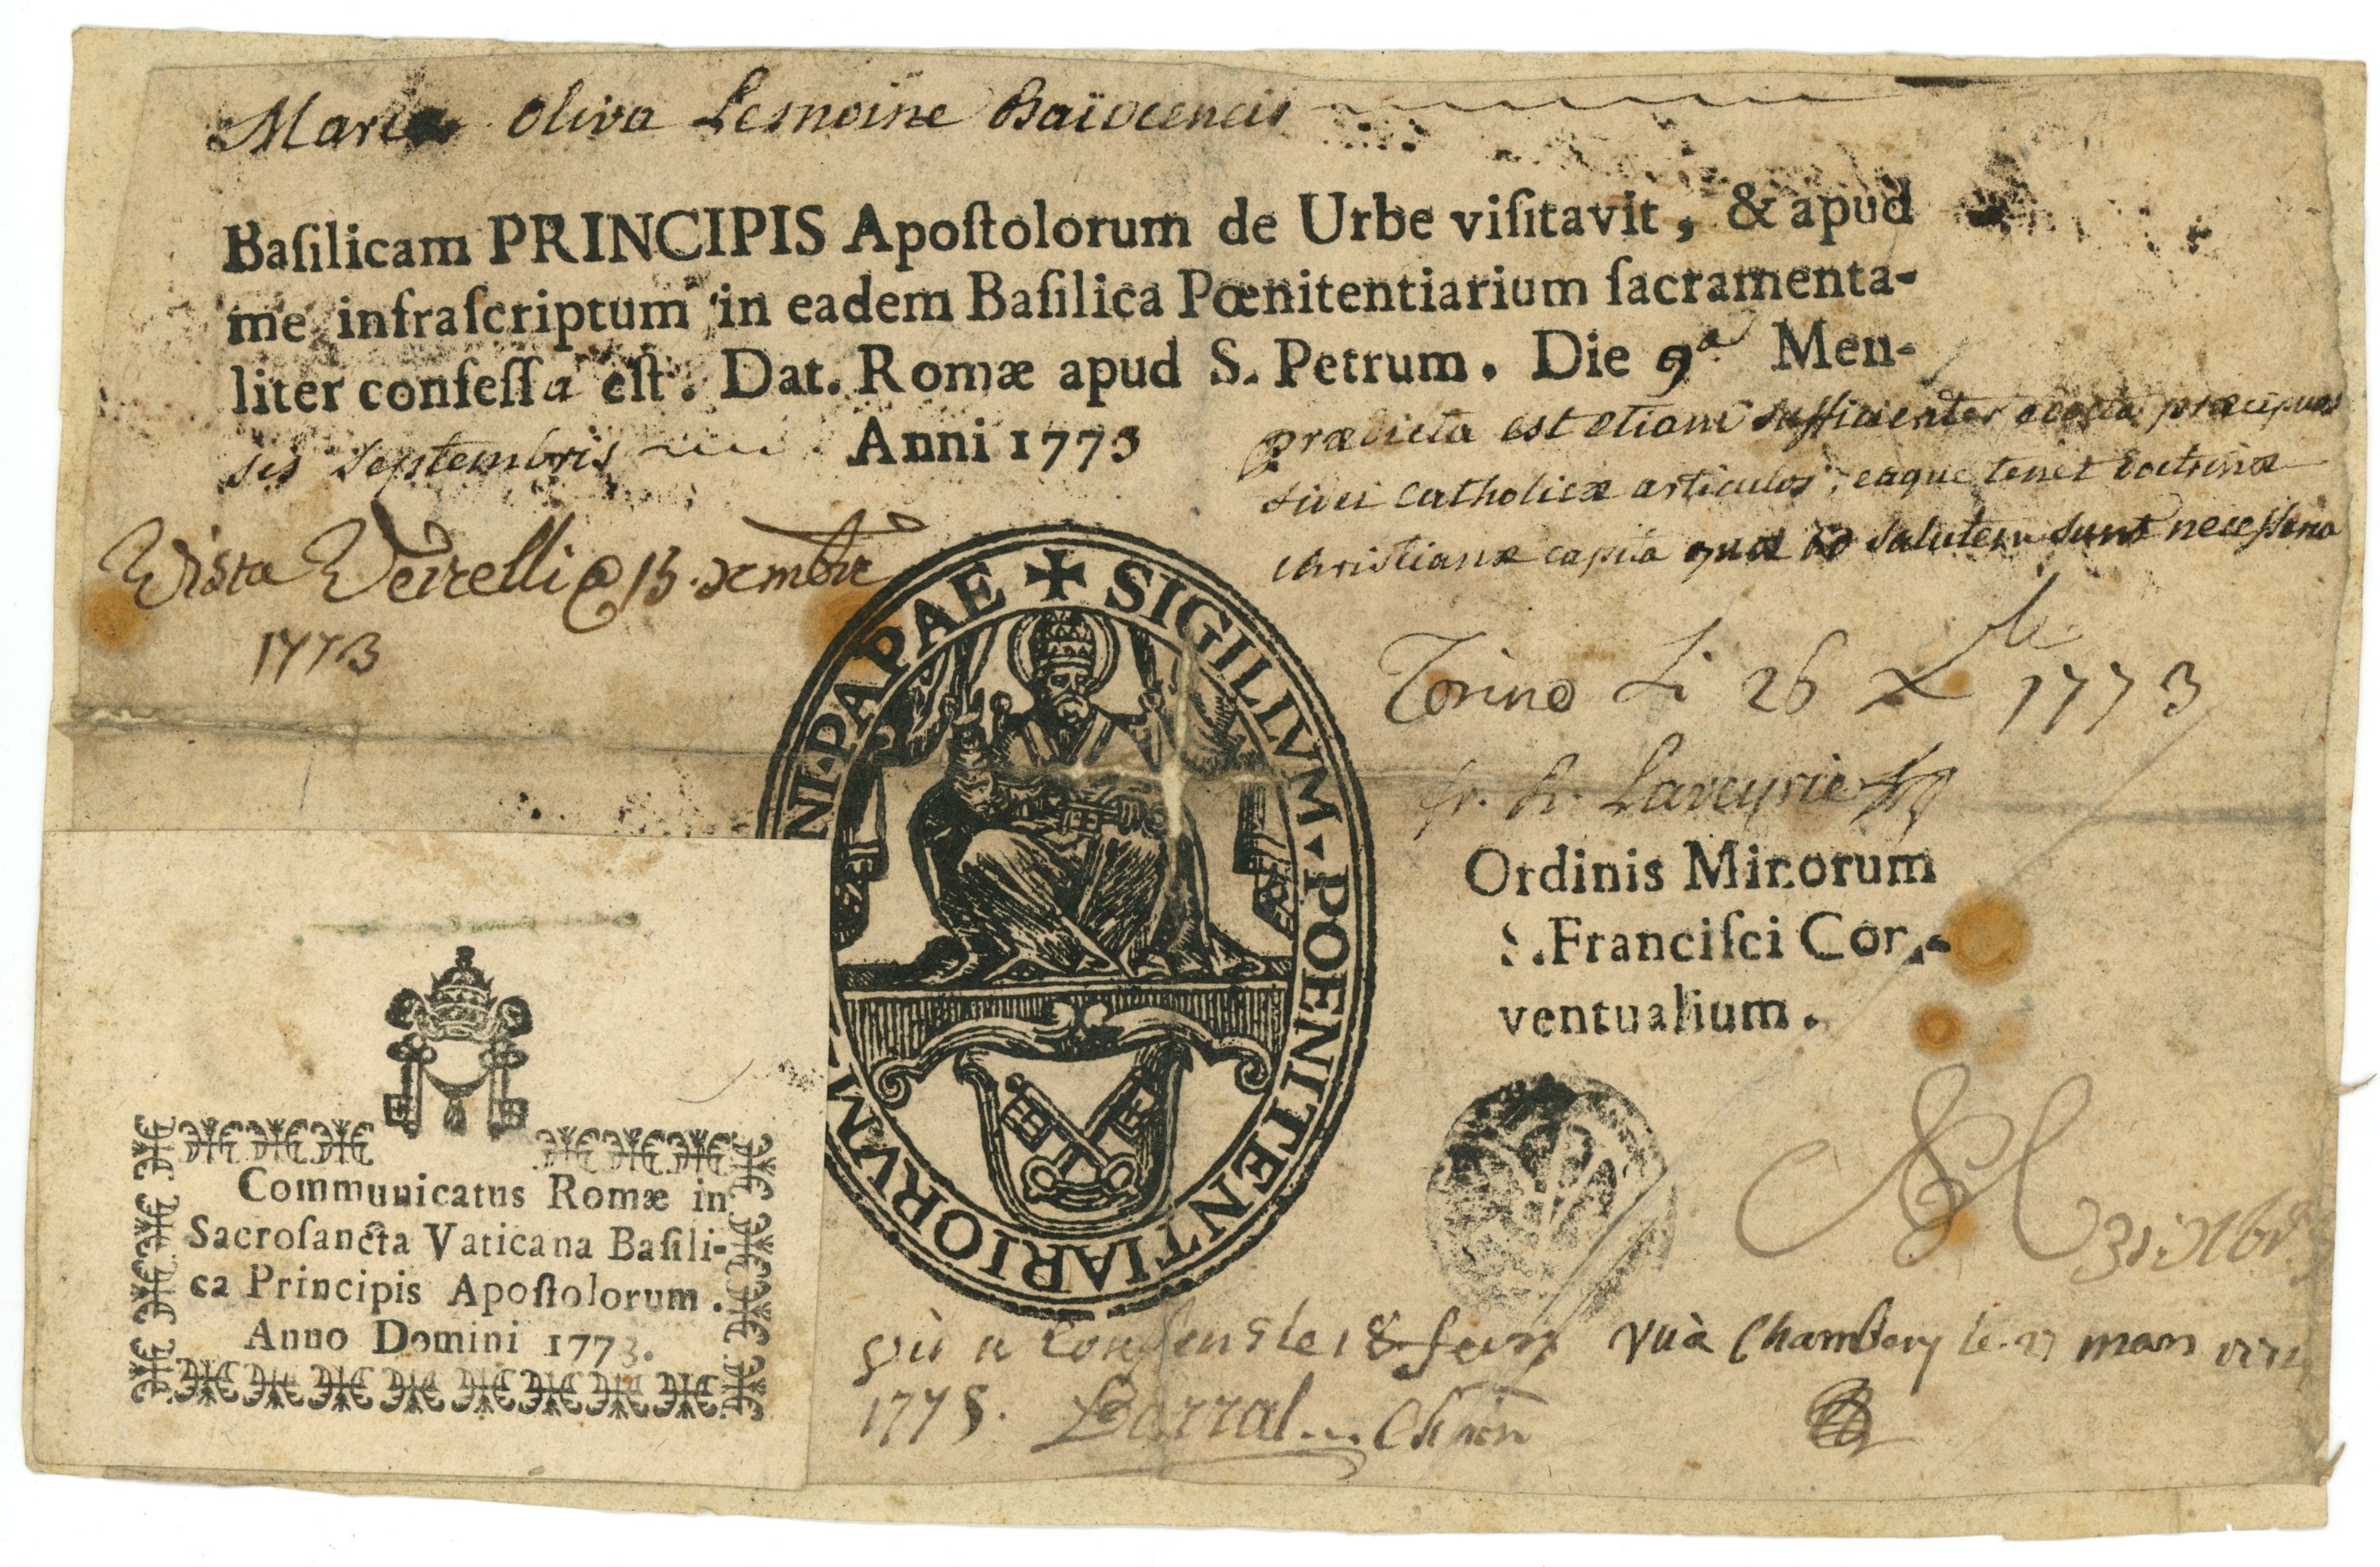 Maria Oliva Lemoine Baiocencis
Baſilicam PRINCIPIS Apoſtolorum de Urbe viſitavit, & apud
me infraſcriptum in eadem Baſilica Pœnitentiarium ſacramenta-
liter confeſſa eſt. Dat. Romæ apud S. Petrum. Die 9a Men-
sis Septembris Anni 1773
prædicta est etiam sufficienter edocta præcipuos
fidei Catholicæ articulos, eaque tenet doctrinæ
christianæ capita quæ ad salutem sunt necessaria
Vista Vercelli 15 xmbre
1773
Torino Li 26 Xbre 1773
fr. Laveyrie
Ordinis Minorum
S. Franciſci Con-
ventualium.
✠ SIGILIVM · POENITENTIARIORVM NI · PAPAE
31 Xbre
Communicatus Romæ in
Sacroſancta Vaticana Baſili-
ca Principis Apoſtolorum.
Anno Domini 1773.
vù a le 18
1775. Barral
Vu à Chambery le 27 mars